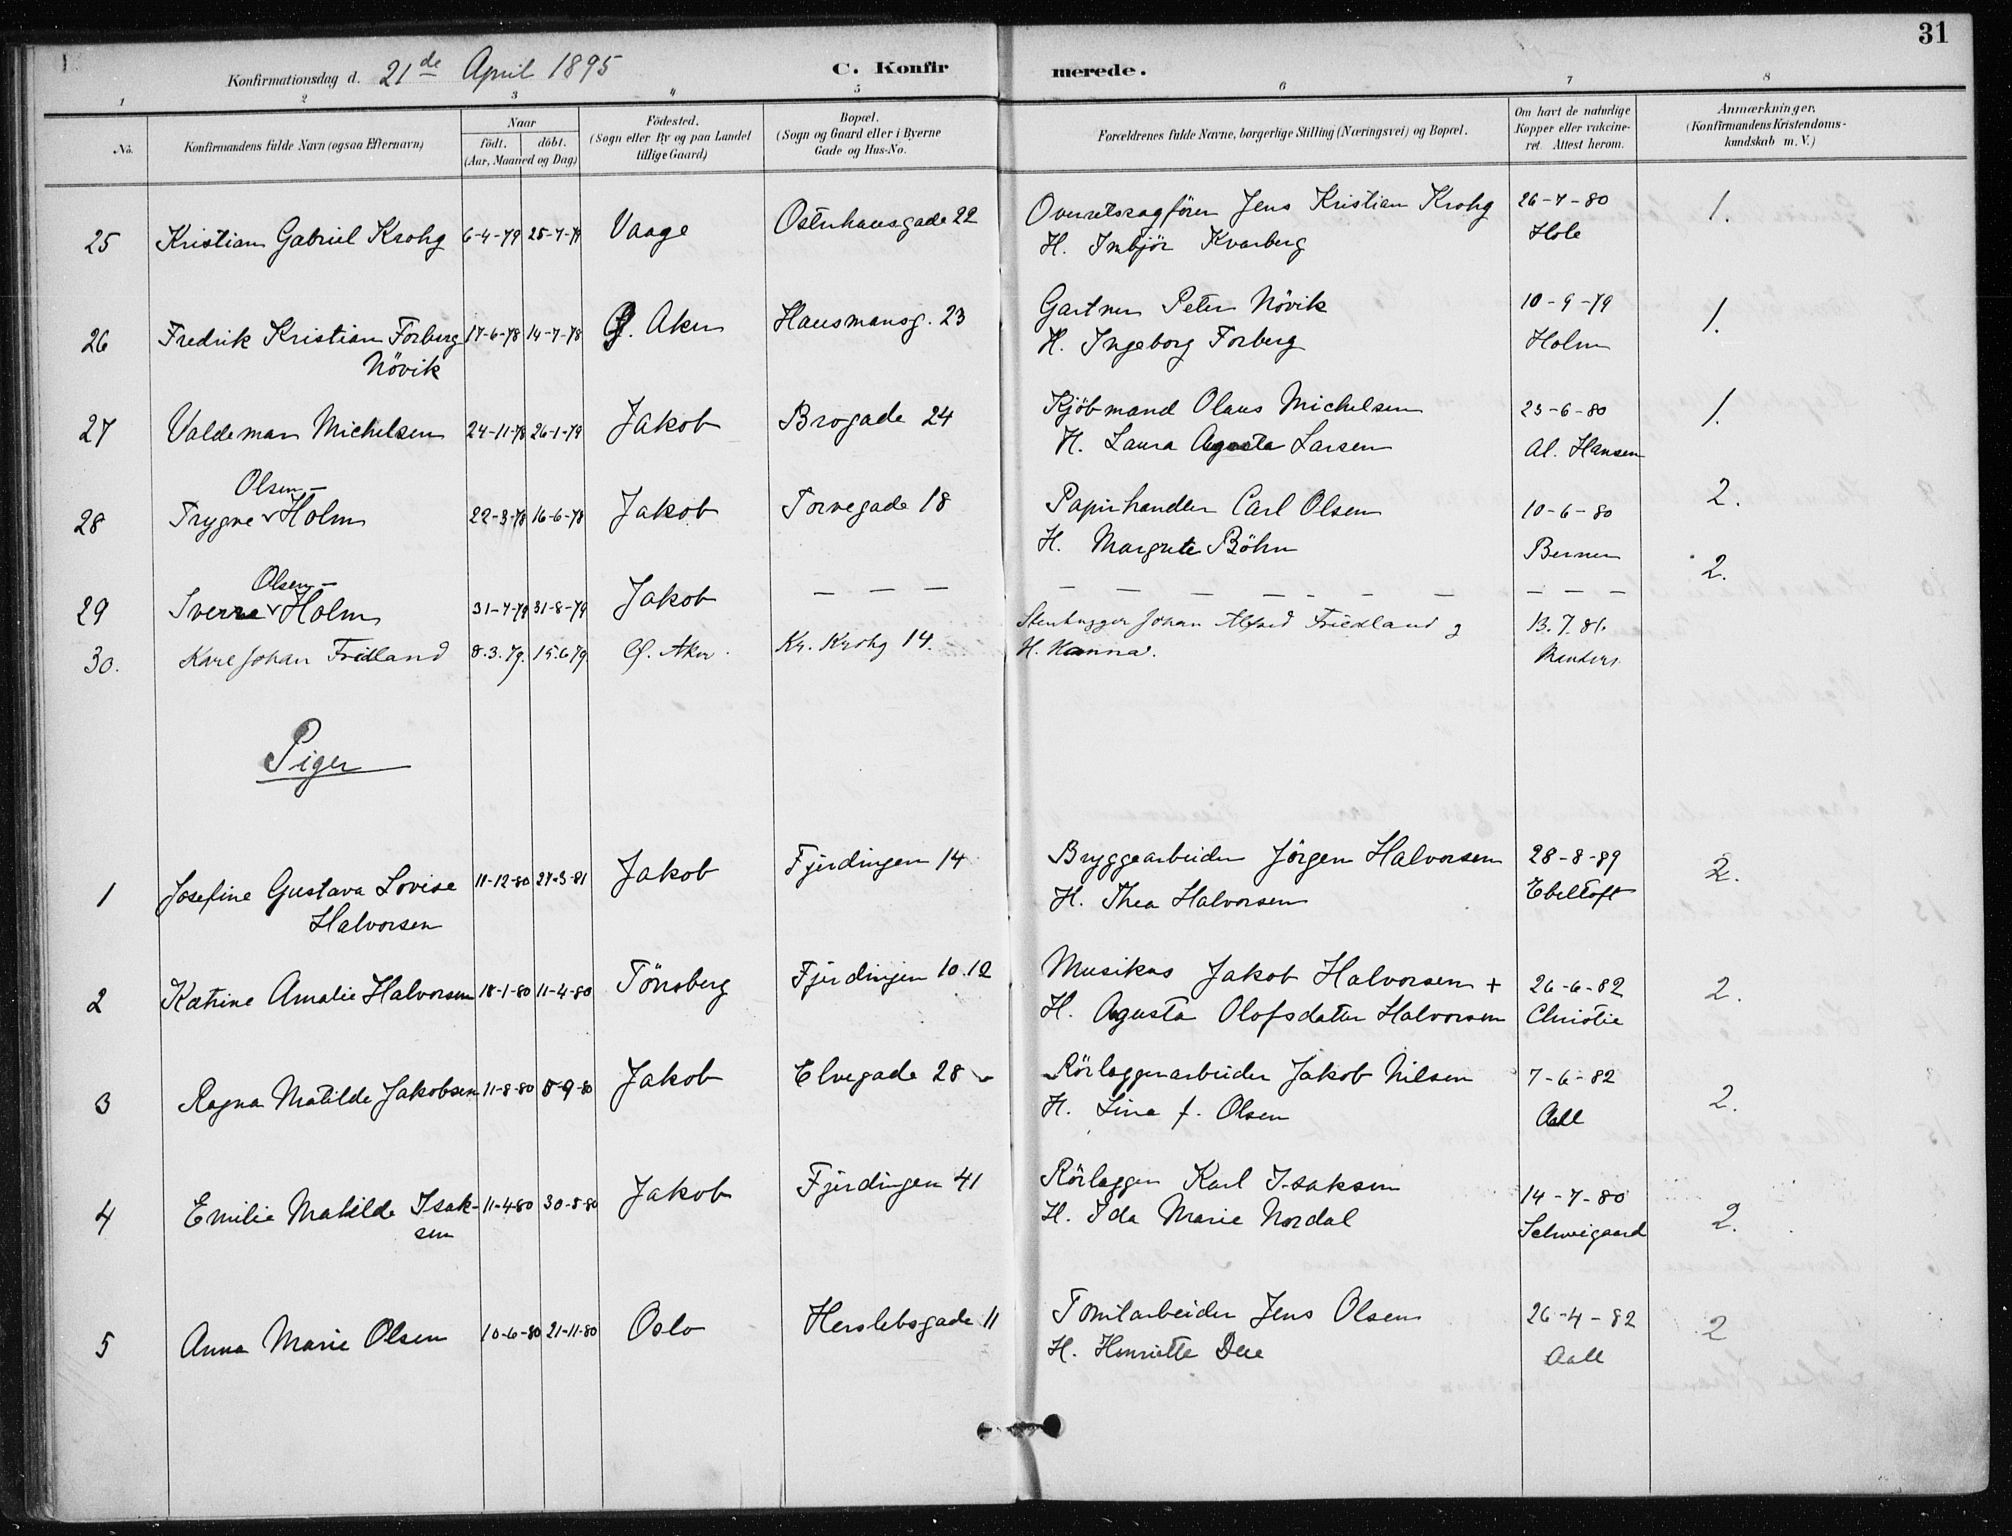 31
Konfirmationsdag d. 21de April 1895 C. Konfir merede.
1 2 3 4 5 6 7 8
No. Konfirmandens fulde Navn (ogsaa Efternavn) Naar født. døbt. (Aar, Maaned og Dag) Fødested. (Sogn eller By og paa Landet tillige Gaard) Bopæl. (Sogn og Gaard eller i Byerne Gade og Hus-No. Forældrenes fulde Navne, borgerlige Stilling (Næringsvei) og Bopæl. Om havt de naturlige Kopper eller vakcineret. Attest herom. Anmærkninger. (Konfirmandens Kristendomskundskab m. V.)
25 Kristian Gabriel Krohg 6-4-79 25-7-79 Vaage Osterhausgade 22 Overretssagfører Jens Kristian Krohg 26-7-80 1.
H. Imbjör Kvarberg Hole
26 Fredrik Kristian Forberg 17-6-78 14-7-78 Ø. Aker Hausmansg. 23 Gartner Peter Növik 10-9-79 1.
Növik H. Ingeborg Forberg Holm
27 Valdemar Michelsen 24-11-78 26-1-79 Jakob Brogade 24 Kjöbmand Olaus Michelsen 23-6-80 1.
H. Laura Agusta Larsen Al. Hansen
Olsen-
28 Trygve Holm 22-3-78 16-6-78 Jakob Torvegade 18 Papirhandler Carl Olsen 10-6-80 2.
H. Margrete Böhn Berner
Olsen-
29 Sverre Holm 31-7-79 31-8-79 Jakob — — — — — — — — — — — — — — 2.
30. Karl Johan Fridland 8.3.79. 15.6.79 Ø. Aker. Kr. Krohg 14. Stenhugger Johan Alfred Friedland og 13.7.81.
H. Hanna.
Piger
1 Josefine Gustava Lovise 11-12-80 27-3-81 Jakob Fjerdingen 14 Bryggearbeider Jörgen Halvorsen 28-8-89 2.
Halvorsen H. Thea Halvorsen Ebeltoft
2 Katrine Amalie Halvorsen 18-1-80 11-4-80 Tönsberg Fjerdingen 10.12 Musikus Jakob Halvorsen + 26-6-82 2.
H. Agusta Olofsdatter Halvorsen Christie
3 Ragna Matilde Jakobsen 11-8-80 8-9-80 Jakob Elvegade 28 Rörlæggerarbeider Jakob Nilsen 7-6-82 2.
H. Lina f. Olsen Aall
4 Emilie Matilde Isak- 11-4-80 30-5-80 Jakob Fjerdingen 41 Rörlægger Karl Isaksen 14-7-80 2.
sen H. Ida Marie Nordal Schweigaard
5 Anna Marie Olsen 10-6-80 21-11-80 Oslo Herslebsgade 11 Tomtarbeider Jens Olsen 26-4-82 2
H. Henriette Aall